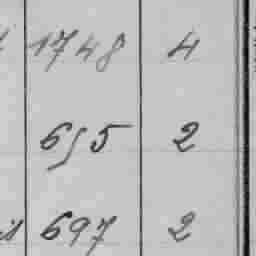 1748 4
655 2
is 697 2